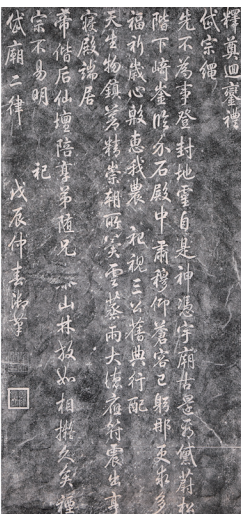 釋奠迴鑾禮
岱宗繩
先不為事登封地靈自是神憑宇廟古還看黛蔚松
階下崎嶔臨介石殿中肅穆仰蒼容已躬那更求多
福祈歲心殷惠我農 祀視三公舊典行配
天生物鎮蒼精崇朝所冀雲蒸雨大德應符震出亨
寢殿端居
帝偕后仙壇陪享弟隨兄 山林放如相擬久矣禋
宗不易明 祀
岱廟二律 戊辰仲春御筆